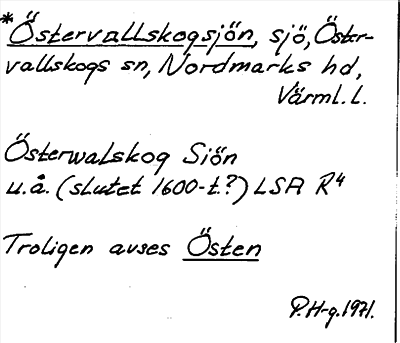 *Östervallskogsjön, sjö, Öster-
vallskogs sn, Nordmarks hd,
Värml. l.
Österwalskog Siön
u.å. (slutet 1600-t.?) LSA R4
Troligen avses Östen
P.H-g. 1971.